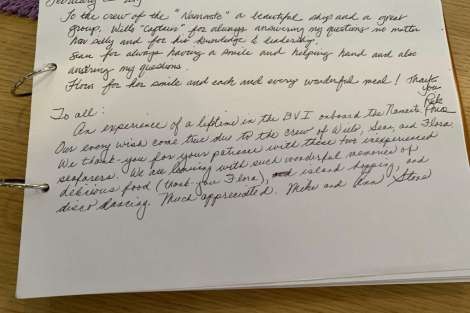 To the crew of the "Namaste" a beautiful ship and a great
group, Wills "Captain" for always answering my questions no matter
how silly and for his knowledge & leadership.
Sean for always having a smile and helping hand and also
answering my questions.
Flora for her smile and each and every wonderful meal! Thank
you
To all:
An experience of a lifetime in the BVI onboard the Namaste
Our every wish come true due to the crew of Wills, Sean, and Flora
We thank-you for your patience with these two inexperienced
seafarers. We are leaving with such wonderful memories of
delicious food (thank-you Flora), island hopping, and
disco dancing. Much appreciated. Mike and Ann Stone